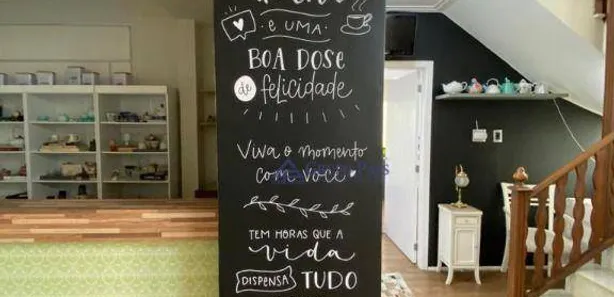 E UMA
BOA DOSE
de felicidade
Viva o momento
com você
TEM HORAS QUE A
vida
DISPENSA TUDO